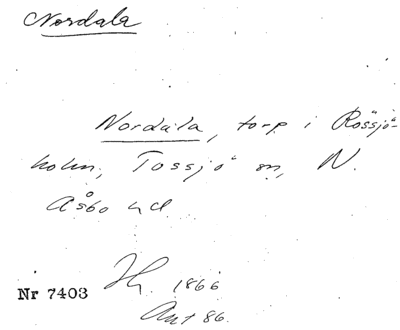 Nordala
Nordala, torp i Rössjö-
holm, Tossjö sn, N.
Åsbo hd
Hg. 1866
Ant 86.
Nr 7403